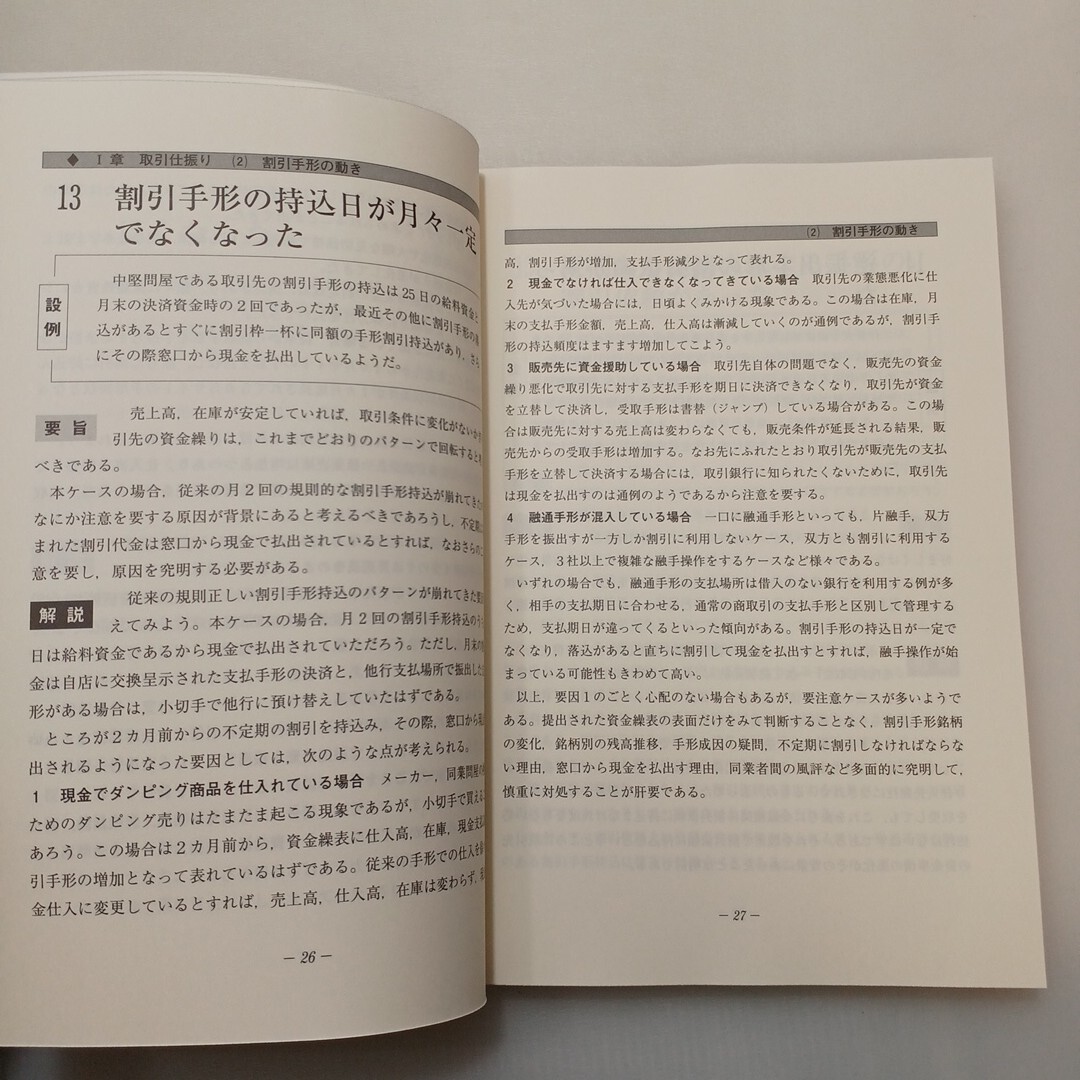 ◆ Ⅰ章 取引仕振り (2) 割引手形の動き
13 割引手形の持込日が月々一定
でなくなった
設例
中堅問屋である取引先の割引手形の持込は25日の給料資金と
月末の決済資金時の2回であったが，最近その他に割引手形の落
込があるとすぐに割引枠一杯に同額の手形割引持込があり，さら
にその際窓口から現金を払出しているようだ。
要旨
売上高，在庫が安定していれば，取引条件に変化がないかぎ
引先の資金繰りは，これまでどおりのパターンで回転すると
べきである。
本ケースの場合，従来の月2回の規則的な割引手形持込が崩れてきた
なにか注意を要する原因が背景にあると考えるべきであろうし，不定期
まれた割引代金は窓口から現金で払出されているとすれば，なおさらの
意を要し，原因を究明する必要がある。
解説
従来の規則正しい割引手形持込のパターンが崩れてきた
えてみよう。本ケースの場合，月2回の割引手形持込のう
日は給料資金であるから現金で払出されていただろう。ただし，月末の
金は自店に交換呈示された支払手形の決済と，他行支払場所で振出した
形がある場合は，小切手で他行に預け替えしていたはずである。
ところが2カ月前からの不定期の割引を持込み，その際，窓口から
出されるようになった要因としては，次のような点が考えられる。
1 現金でダンピング商品を仕入れている場合 メーカー，同業問屋の
ためのダンピング売りはたまたま起こる現象であるが，小切手で買える
あろう。この場合は2カ月前から，資金繰表に仕入高，在庫，現金支
引手形の増加となって表れているはずである。従来の手形での仕入を
金仕入に変更しているとすれば，売上高，仕入高，在庫は変わらず，
― 26 ―
(2) 割引手形の動き
高，割引手形が増加，支払手形減少となって表れる。
2 現金でなければ仕入できなくなってきている場合 取引先の業態悪化に仕
入先が気づいた場合には，日頃よくみかける現象である。この場合は在庫，月
末の支払手形金額，売上高，仕入高は漸減していくのが通例であるが，割引手
形の持込頻度はますます増加してこよう。
3 販売先に資金援助している場合 取引先自体の問題でなく，販売先の資金
繰り悪化で取引先に対する支払手形を期日に決済できなくなり，取引先が資金
を立替して決済し，受取手形は書替（ジャンプ）している場合がある。この場
合は販売先に対する売上高は変わらなくても，販売条件が延長される結果，販
売先からの受取手形は増加する。なお先にふれたとおり取引先が販売先の支払
手形を立替して決済する場合には，取引銀行に知られたくないために，取引先
は現金を払出すのは通例のようであるから注意を要する。
4 融通手形が混入している場合 一口に融通手形といっても，片融手，双方
手形を振出すが一方しか割引に利用しないケース，双方とも割引に利用する
ケース，3社以上で複雑な融手操作をするケースなど様々である。
いずれの場合でも，融通手形の支払場所は借入のない銀行を利用する例が多
く，相手の支払期日に合わせる，通常の商取引の支払手形と区別して管理する
ため，支払期日が違ってくるといった傾向がある。割引手形の持込日が一定で
なくなり，落込があると直ちに割引して現金を払出すとすれば，融手操作が始
まっている可能性もきわめて高い。
以上，要因1のごとく心配のない場合もあるが，要注意ケースが多いようで
ある。提出された資金繰表の表面だけをみて判断することなく，割引手形銘柄
の変化，銘柄別の残高推移，手形成因の疑問，不定期に割引しなければならな
い理由，窓口から現金を払出す理由，同業者間の風評など多面的に究明して，
慎重に対処することが肝要である。
― 27 ―